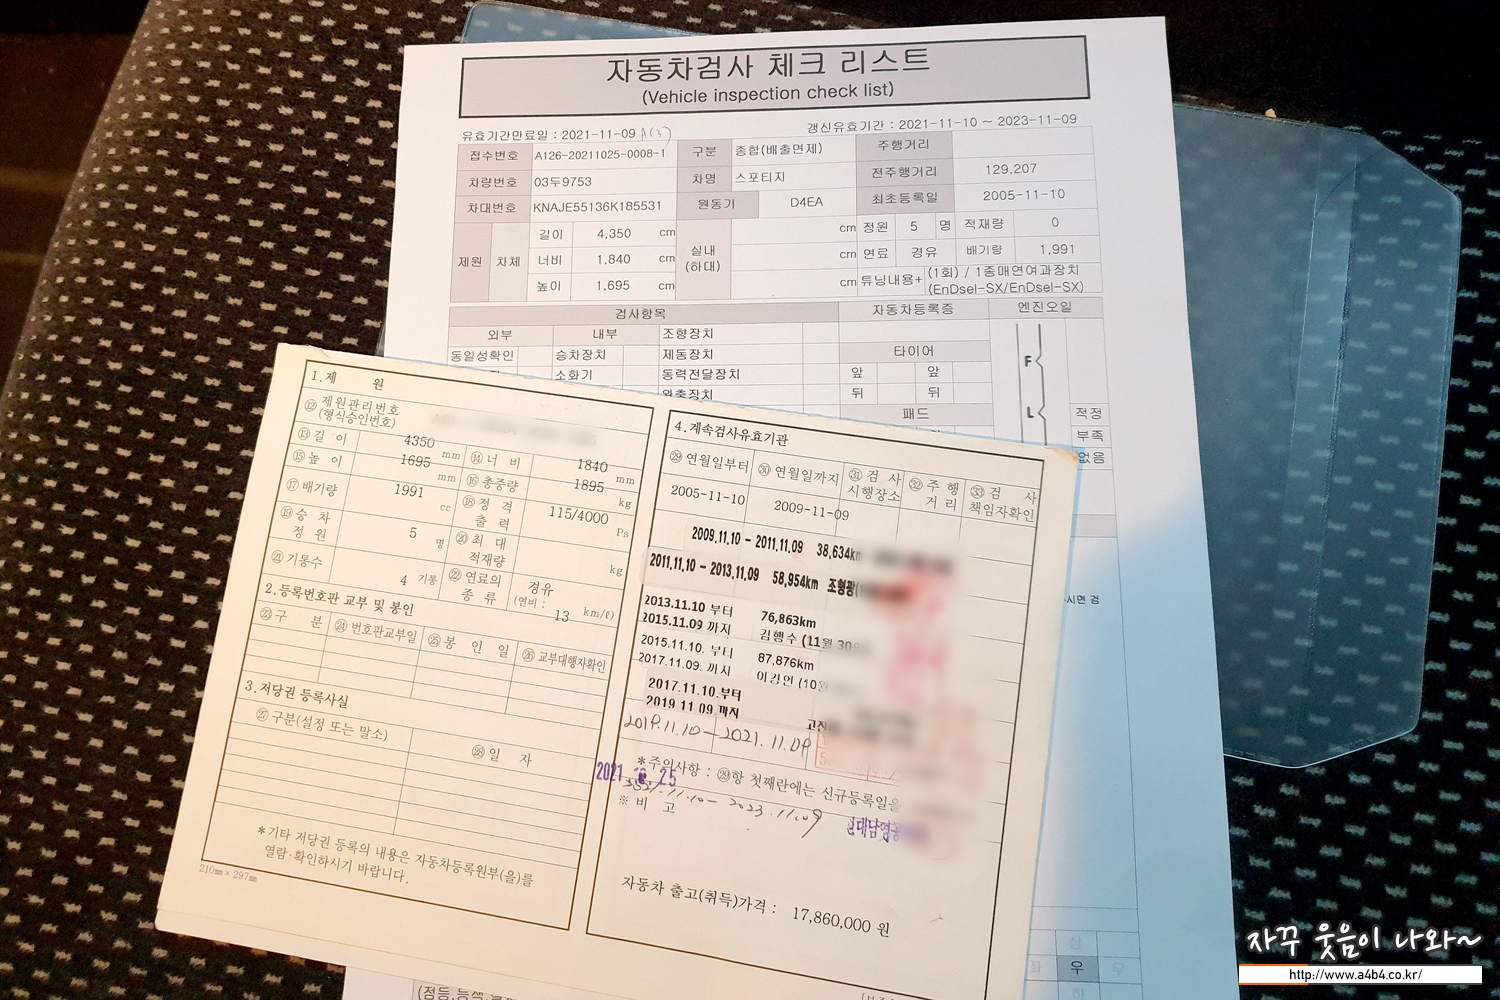 자동차검사 체크 리스트
(Vehicle inspection check list)
유효기간만료일 : 2021-11-09 A(3)
갱신유효기간 : 2021-11-10 ~ 2023-11-09
접수번호 A126-20211025-0008-1 구분 종합(배출면제) 주행거리
차량번호 03두9753 차명 스포티지 전주행거리 129,207
차대번호 KNAJE55136K185531 원동기 D4EA 최초등록일 2005-11-10
제원 차체 길이 4,350 cm 실내 (하대) cm 정원 5 명 적재량 0
너비 1,840 cm cm 연료 경유 배기량 1,991
높이 1,695 cm cm 튜닝내용+ (1회) / 1종매연여과장치
(EnDsel-SX/EnDsel-SX)
검사항목 자동차등록증 엔진오일
외부 내부 조향장치
동일성확인 승차장치 제동장치 타이어
소화기 동력전달장치 앞 앞
완충장치 뒤 뒤
패드
F
L
적정
부족
없음
시면 검
1.제 원
⑫ 제원관리번호
(형식승인번호)
⑬ 길 이 4350 mm ⑭ 너 비 1840 mm
⑮ 높 이 1695 mm ⑯ 총중량 1895 kg
⑰ 배기량 1991 cc ⑱ 정 격 출 력 115/4000 Ps
⑲ 승 차 정 원 5 명 ⑳ 최 대 적재량 kg
㉑ 기통수 4 기통 ㉒ 연료의 종 류 경유
(연비 : 13 km/ℓ)
2.등록번호판 교부 및 봉인
㉓ 구 분 ㉔ 번호판교부일 ㉕ 봉 인 일 ㉖ 교부대행자확인
3.저당권 등록사실
㉗ 구분(설정 또는 말소) ㉘ 일 자
*기타 저당권 등록의 내용은 자동차등록원부(을)를
열람·확인하시기 바랍니다.
210㎜×297㎜
4.계속검사유효기관
㉙ 연월일부터 ㉚ 연월일까지 ㉛ 검 사 시행장소 ㉜ 주 행 거 리 ㉝ 검 사 책임자확인
2005-11-10 2009-11-09
2009.11.10 - 2011.11.09 38,634km
2011.11.10 - 2013.11.09 58,954km 조형광
2013.11.10 부터 76,863km
2015.11.09 까지 김행수 (11월 30
2015.11.10. 부터 87,876km
2017.11.09. 까지 이경인 (10월
2017.11.10.부터
2019 11.09 까지
2019.11.10 - 2021.11.09
*주의사항 : ㉙항 첫째란에는 신규등록일을
2021 25
2021.11.10 - 2023.11.09
※ 비 고
자동차 출고(취득)가격 : 17,860,000 원
우
자꾸 웃음이 나와~
http://www.a4b4.co.kr/